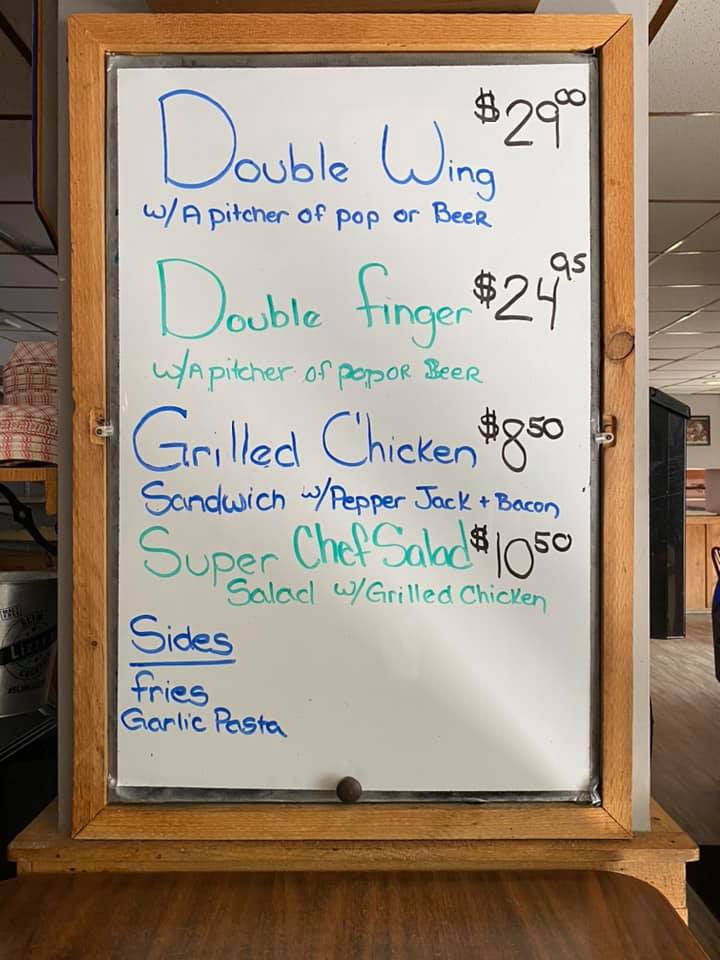 Double Wing $29⁰⁰
w/ A pitcher of pop or Beer
Double finger $24⁹⁵
w/ A pitcher of pop or Beer
Grilled Chicken $8⁵⁰
Sandwich w/ Pepper Jack + Bacon
Super Chef Salad $10⁵⁰
Salad w/ Grilled Chicken
Sides
fries
Garlic Pasta